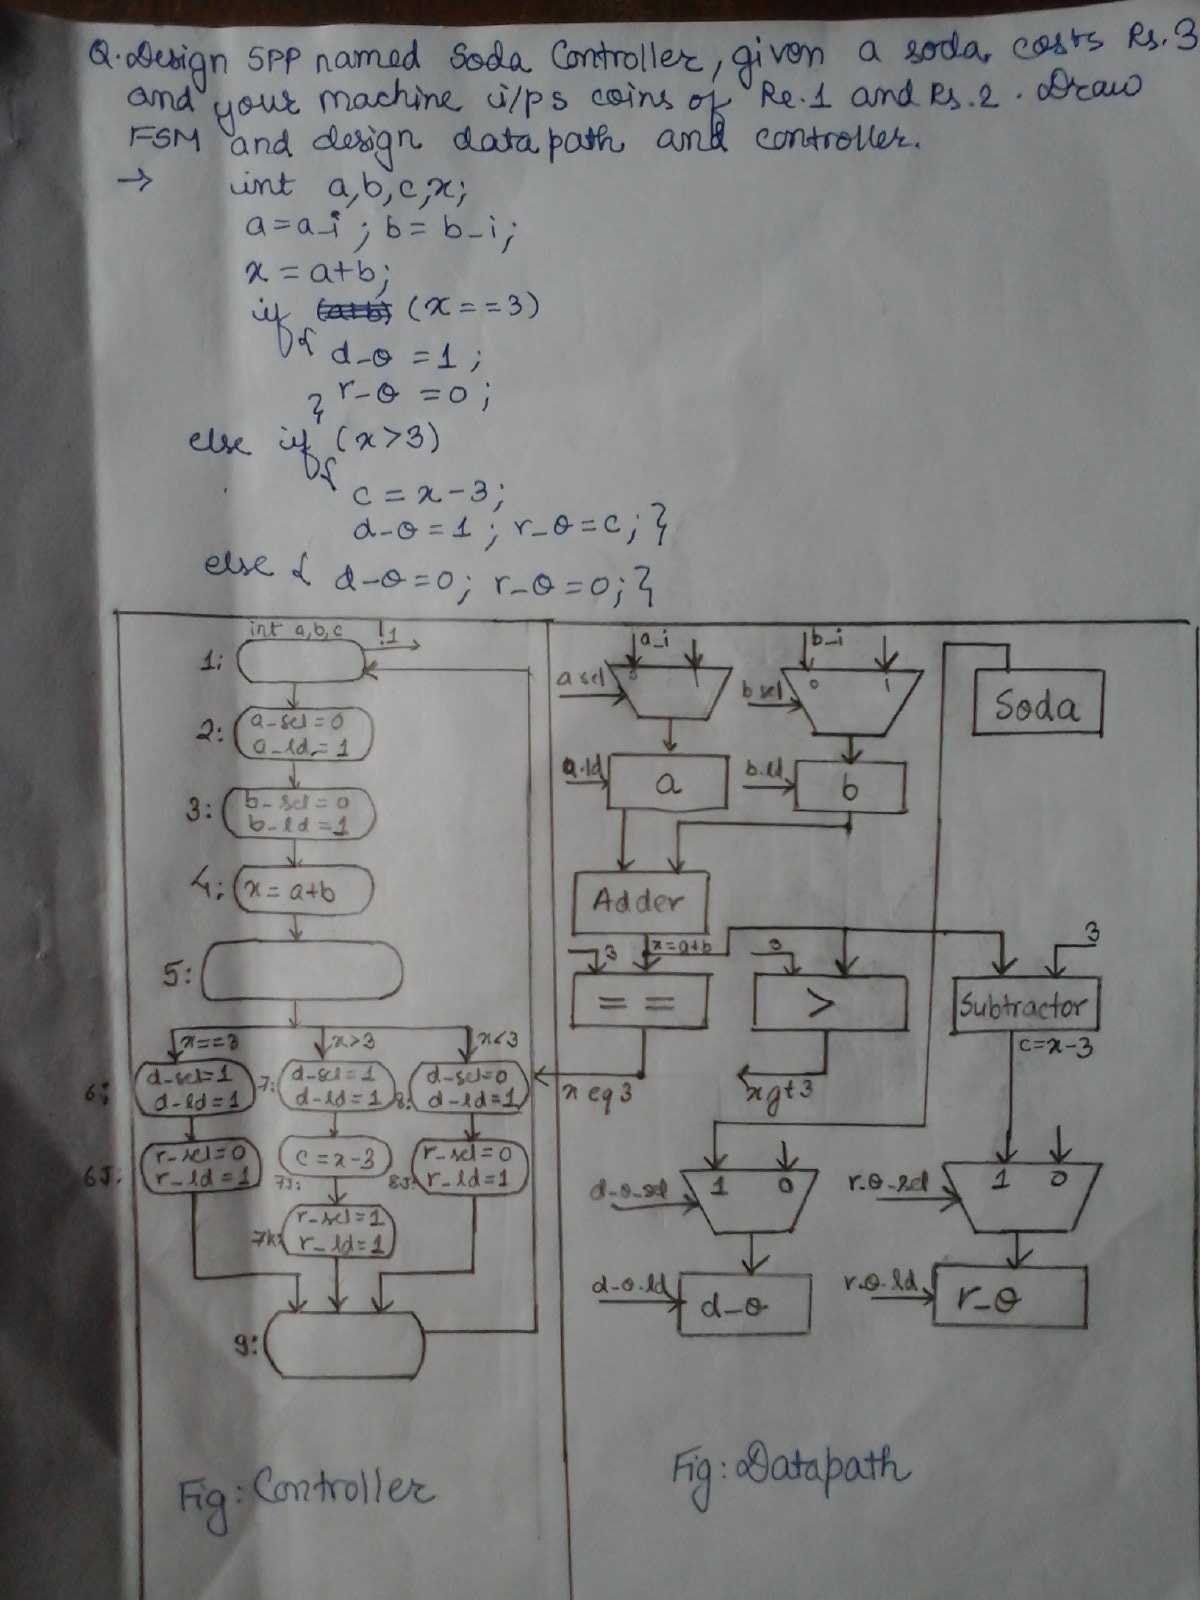 Q. Design SPP named Soda Controller, given a soda costs Rs. 3
and your machine i/ps coins of Re. 1 and Rs. 2. Draw
FSM and design datapath and controller.
→ int a,b,c,x;
a=a_i; b=b_i;
x=a+b;
if (a+b) (x==3)
{ d_o = 1;
} r_o = 0;
else if (x>3)
{
c = x-3;
d_o=1; r_o=c; }
else { d_o=0; r_o=0; }
int a,b,c !1
1:
2: a_sel=0
a_ld=1
3: b_sel=0
b_ld=1
4: x=a+b
5:
x==3 x>3 x<3
6: d_sel=1
d_ld=1
7: d_sel=1
d_ld=1
8: d_sel=0
d_ld=1
6J: r_sel=0
r_ld=1
7J: c=x-3
8J: r_sel=0
r_ld=1
7K: r_sel=1
r_ld=1
9:
Fig: Controller
a_i b_i
a sel 0 1
b sel 0 1
Soda
a.ld a
b.ld b
Adder
3 x=a+b 3 3
== > Subtractor
c=x-3
x eq 3 x gt 3
d_o_sel 1 0
r.o_sel 1 0
d_o.ld d_o
r.o.ld r_o
Fig: Datapath